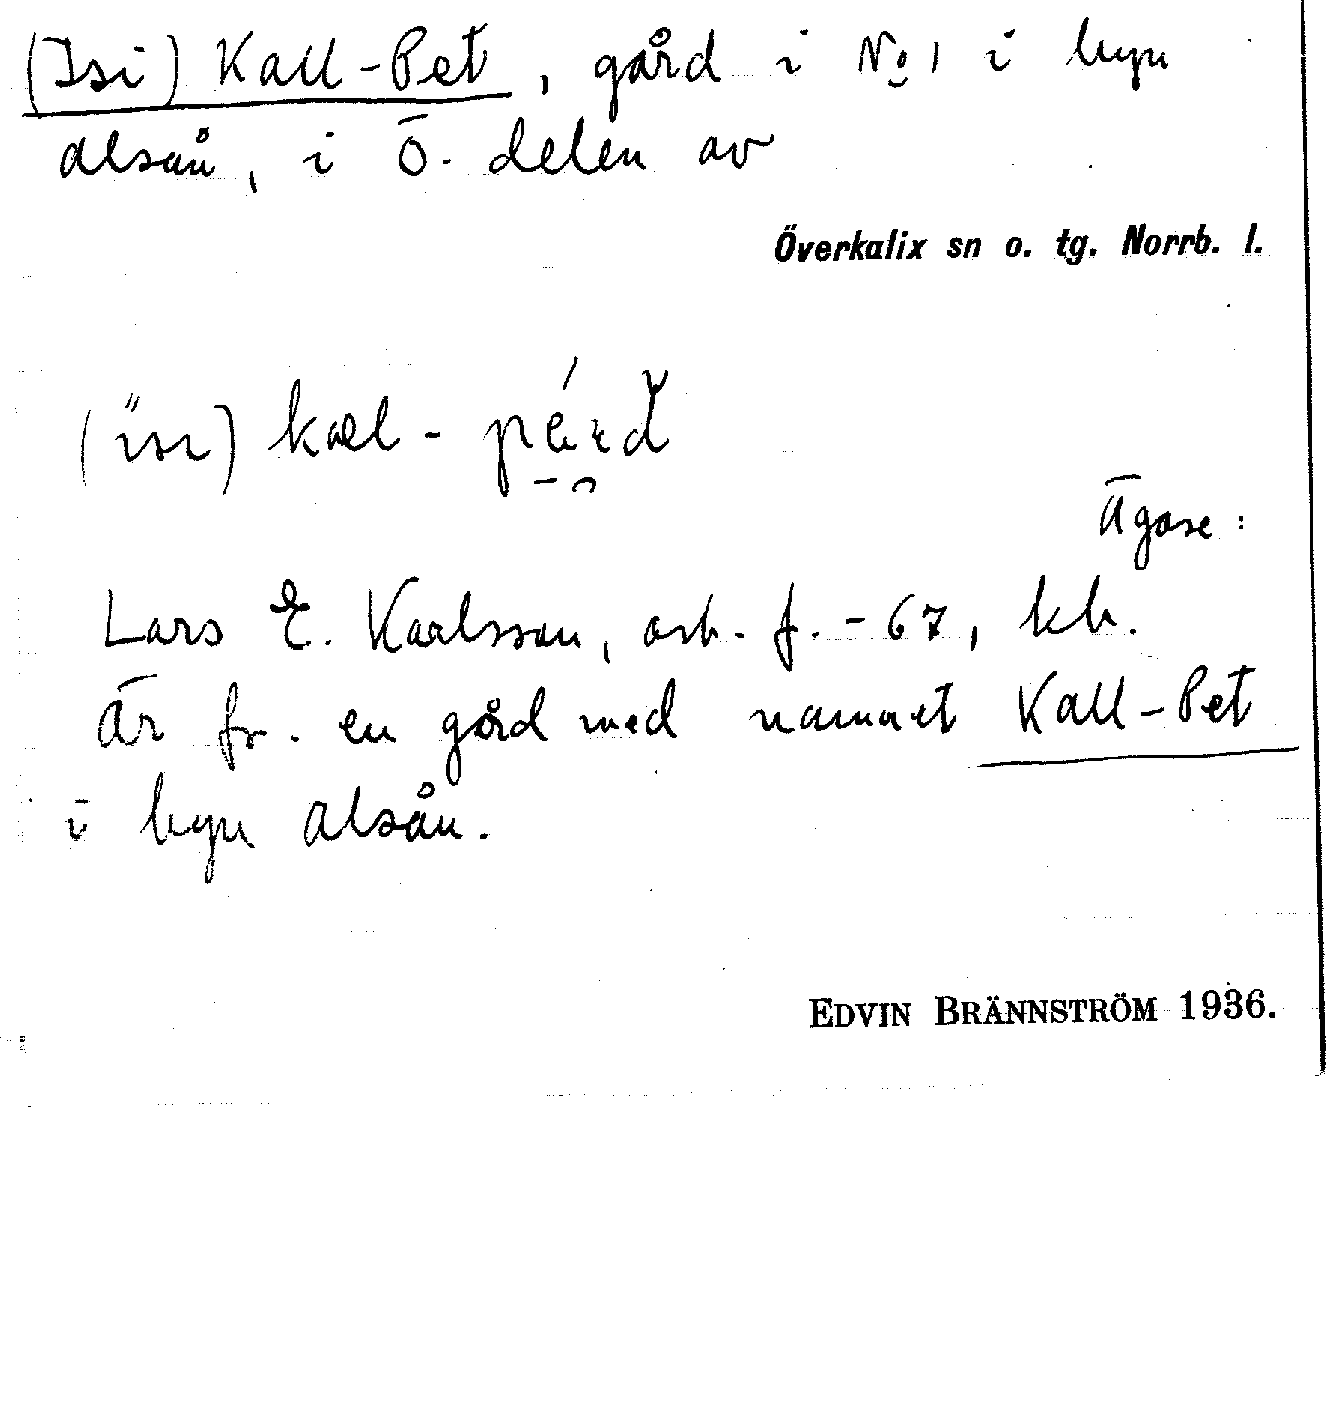 (Isi) Kall-Pet, gård i No 1 i byn
Alsån, i Ö. delen av
Överkalix sn o. tg. Norrb. l.
kæl-
Ägare:
Lars E. Karlsson, arb. f. -67, kb.
Är fr. en gård med namnet Kall-Pet
i byn Alsån.
EDVIN BRÄNNSTRÖM 1936.